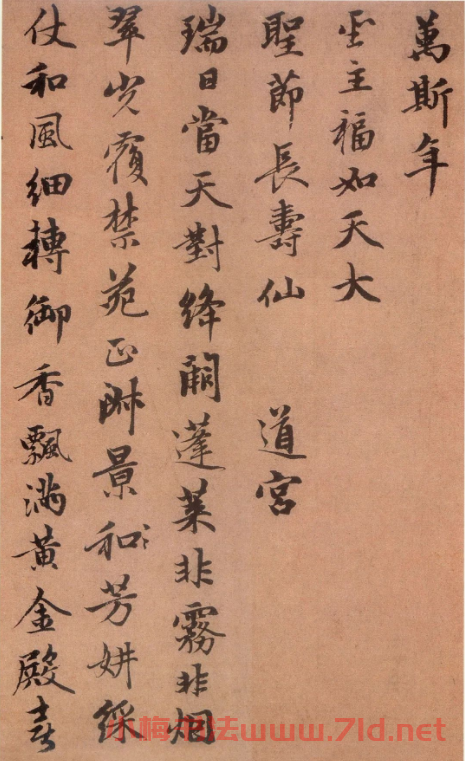 萬斯年
聖主福如天大
聖節長壽仙 道宮
瑞日當天對絳闕蓬萊非霧非烟
翠光覆禁苑正淑景和芳妍綵
仗和風細轉御香飄滿黃金殿喜
小梅书法www.7ld.net